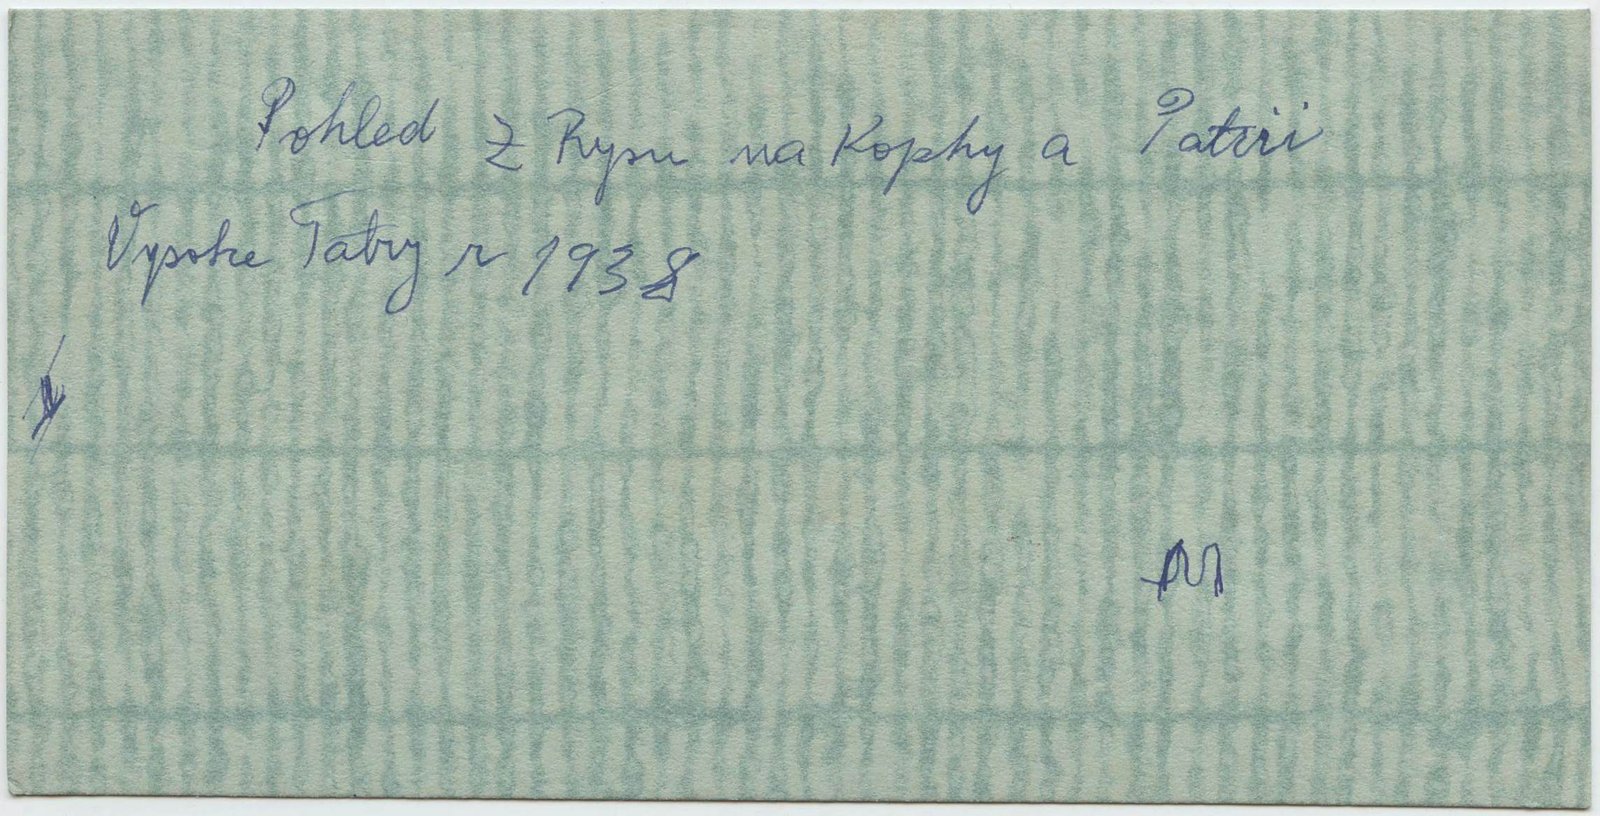 Pohled z Rysu na Kophy a Patiri
Vysoke Tatry r 1938
M